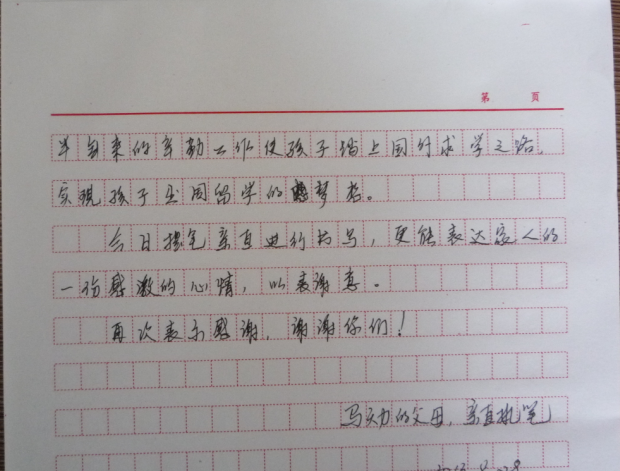 第 页
半年来的辛勤工作使孩子踏上国外求学之路,
实现孩子出国留学的梦想。
今日提笔亲自进行书写,更能表达家人的
一份感激的心情,以表谢意。
再次表示感谢,谢谢你们!
马天力的父母,亲自执笔